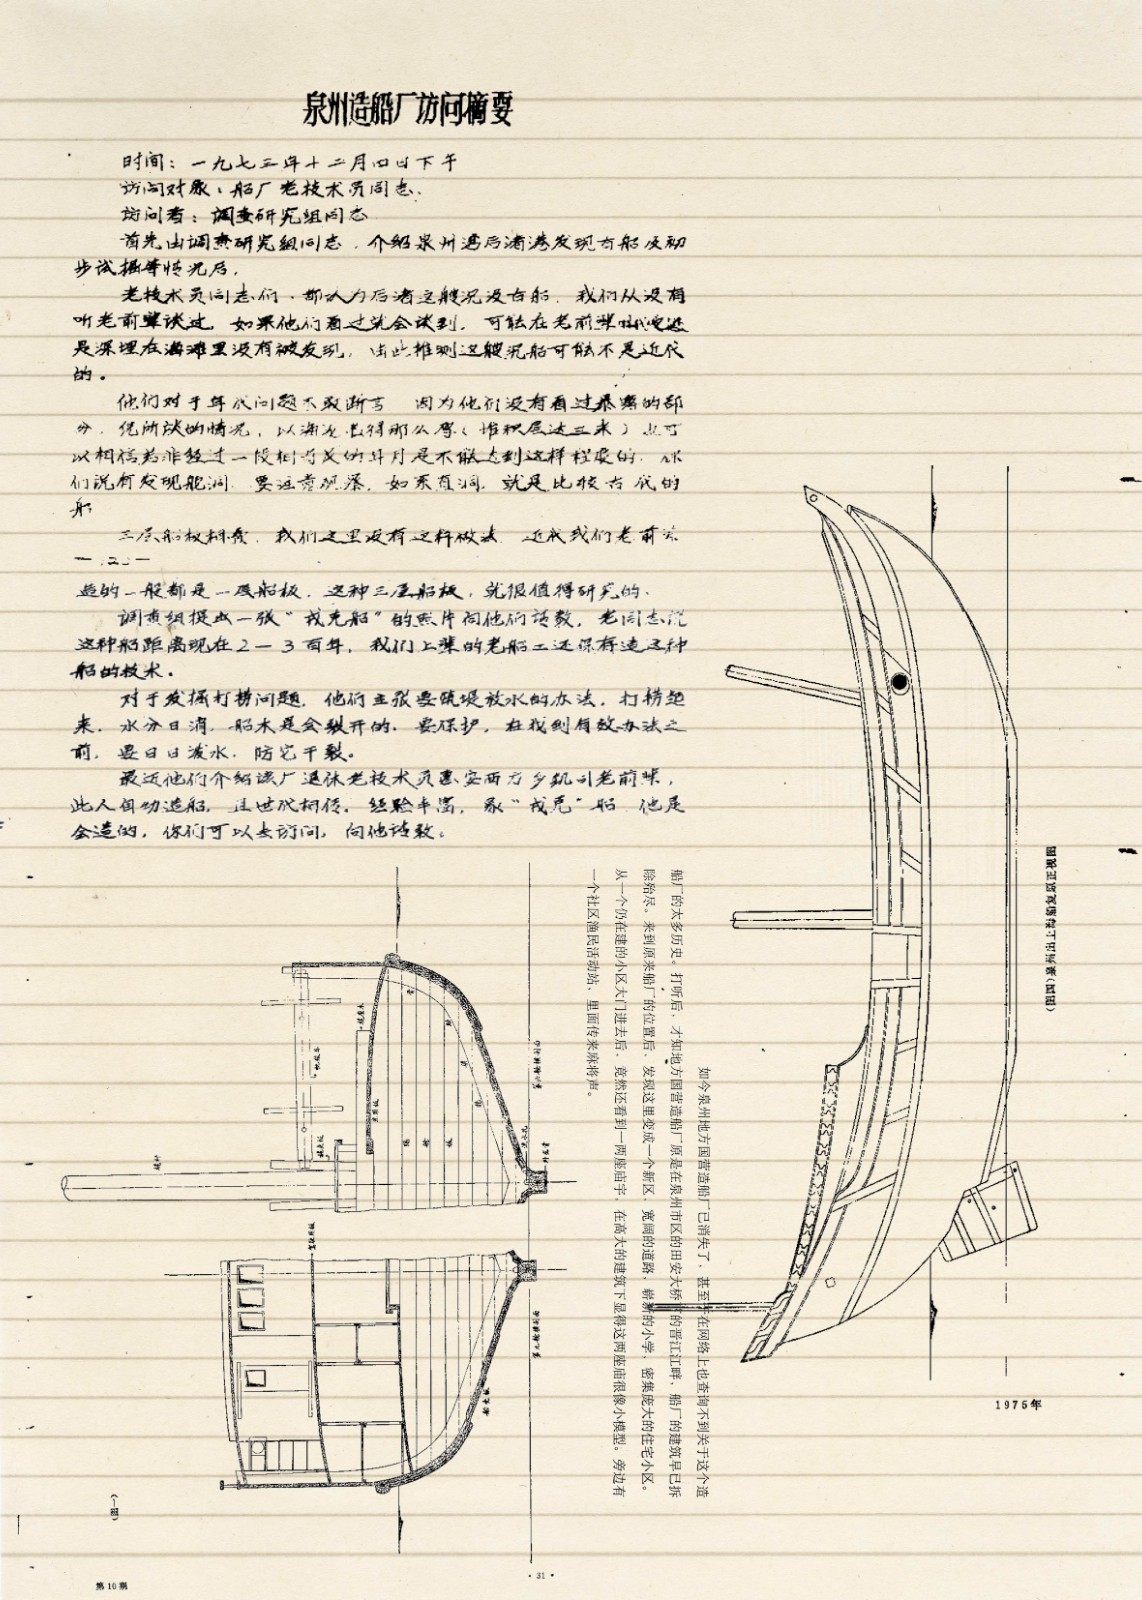 泉州造船厂访问摘要
时间：一九七三年十二月四日下午
访问对象：船厂老技术员同志．
访问者：调查研究组同志
首先由调查研究组同志．介绍泉州湾后渚港发现古船及初
步试掘等情况后．
老技术员同志们．都认为后渚这艘沉没古船．我们从没有
听老前辈谈过．如果他们看过就会谈到．可能在老前辈时代还
是深埋在海滩里没有被发现．由此推测这艘沉船可能不是近代
的。
他们对于年代问题不敢断言 因为他们没有看过暴露的部
分．（堆积层达三米）也可
以相信若非经过一段相当的是不能达到这样程度的．
们说有发现舵洞．要注意观落．如系直洞．就是比较古代的
船
三层船板相叠．我们这里没有这种做法 近代我们老前辈
造的一般都是一层船板．这种三层船板，就很值得研究的．
调查组提出一张“戎克船”的照片向他们请教．老同志说
这种船距离现在2—3百年．我们上辈的老船工还保存造这种
船的技术．
对于发掘打捞问题．他们主张要筑堤放水的办法．打捞起
来．水分日消．船木是会裂开的．要保护．在找到有效办法之
前．要日日泼水．防它干裂。
最近他们介绍该厂退休老技术员惠安西方乡老前辈，
此人自幼造船．且世代相传．经验丰富．“戎克”船 他是
会造的．你们可以去访问．向他请教。
如今泉州地方国营造船厂已消失了，甚至在网络上也查询不到关于这个造
船厂的太多历史。打听后，才知地方国营造船厂原是在泉州市区的田安大桥的晋江江畔，船厂的建筑早已拆
除殆尽。来到原来船厂的位置后，发现这里变成一个新区，宽阔的道路，崭新的小学，密集庞大的住宅小区。
从一个仍在建的小区大门进去后，竟然还看到一两座庙宇，在高大的建筑下显得这两座庙很像小模型。旁边有
一个社区渔民活动站，里面传来麻将声。
（图四）泉州出土海船复原正视图
1975年
（图一）
· 31 ·
第10期